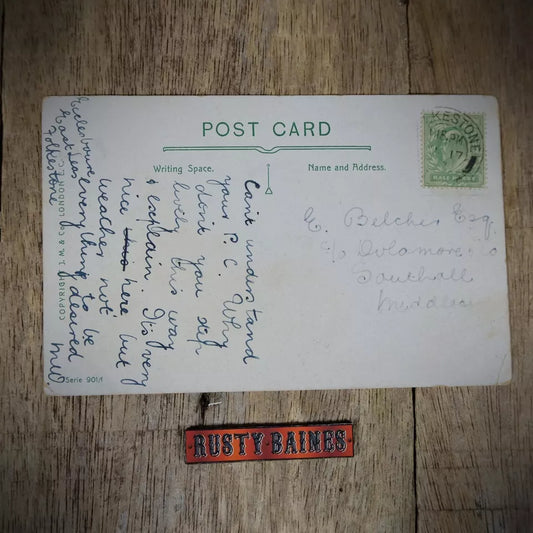 POST CARD
Writing Space.
Name and Address.
KESTONE
PM
17
HALFPENNY
Can't understand
your P. C. Why
don't you slip
lively this way
& explain. Its very
nice here but
weather not
everything to be
desired
Mel.
East Leas
Folkestone
E. Belcher Esq.
c/o Dolamore & Co
Southall
Middlesex
COPYRIGHT J.M. & Co. LONDON E.C.
Serie 901/1
RUSTY·BAINES